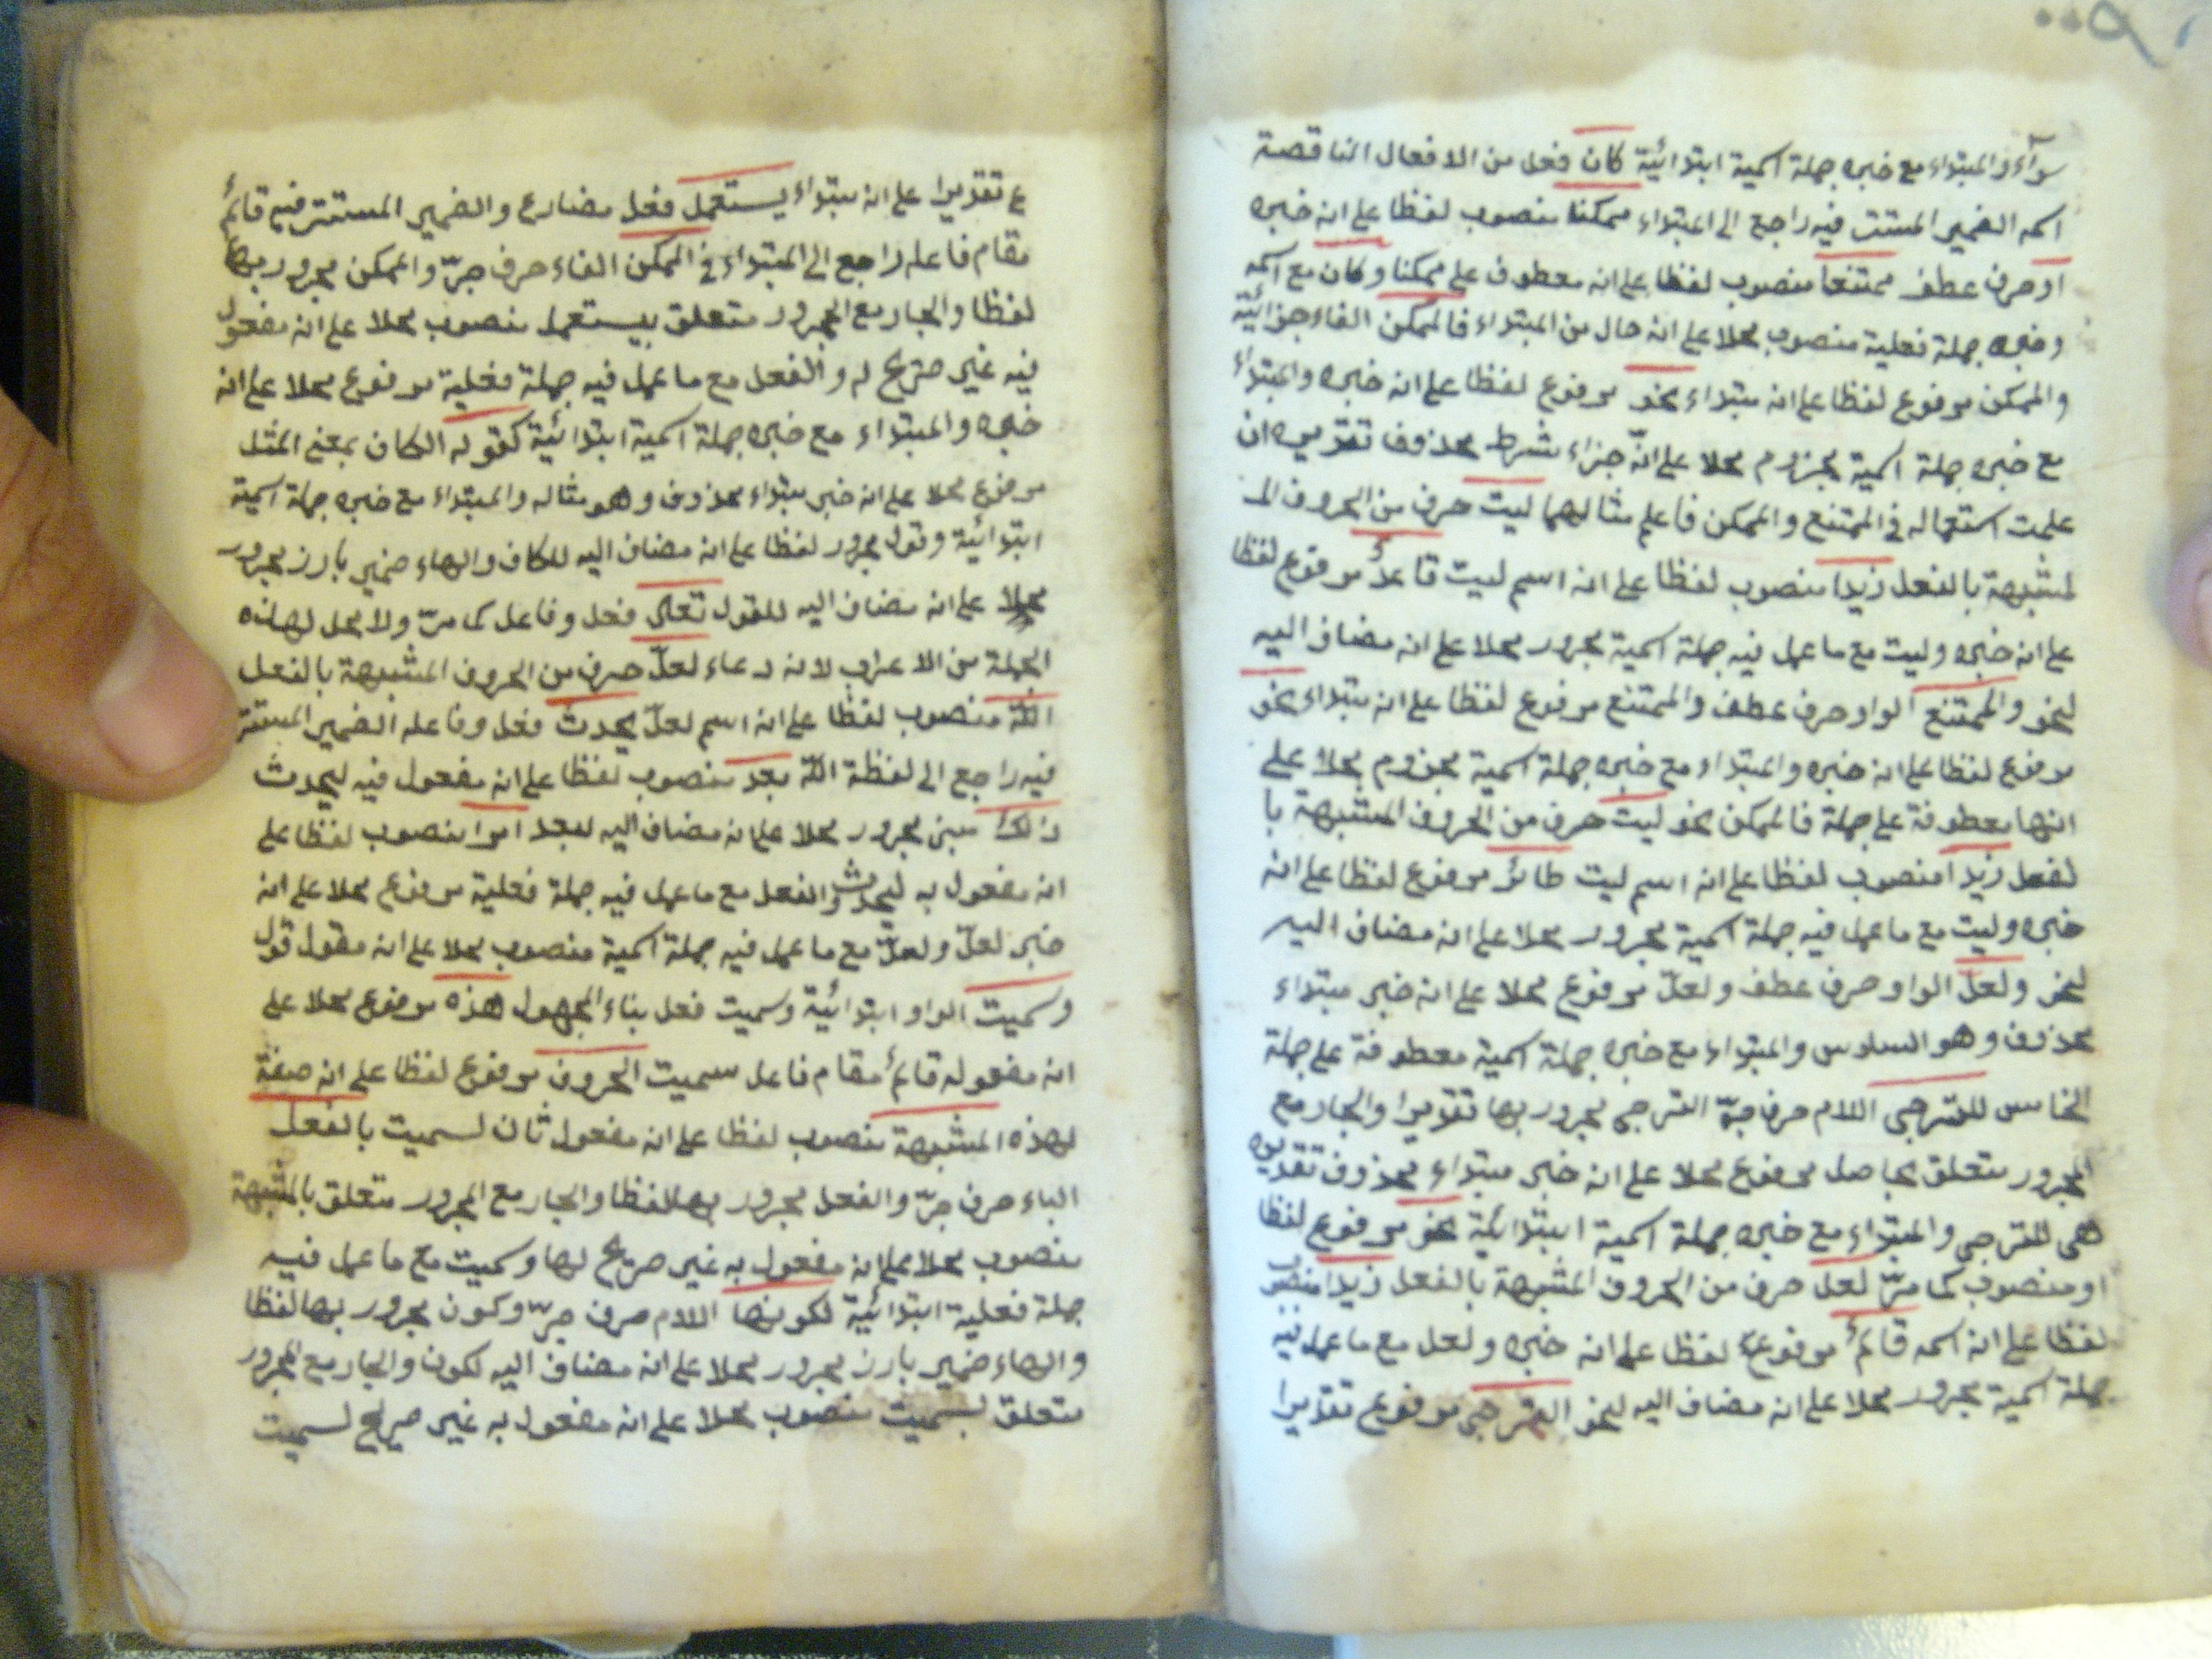 سوآء والمبتداء مع خبره جملة اسمية ابتدائية كان فعل من الافعال الناقصة
اسمه الضمير المستتر فيه راجع الى المبتداء ممكنا منصوب لفظا على انه خبره
او حرف عطف ممتنعا منصوب لفظا على انه معطوف على ممكنا وكان مع اسمه
وخبره جملة فعلية منصوب محلا على انه حال من المبتداء فالممكن الفاء جزائية
والممكن مرفوع لفظا على انه مبتداء نحو مرفوع لفظا على انه خبره والمبتداء
مع خبره جملة اسمية مجزوم محلا على انّه جزاء شرط محذوف تقديره ان
علمت استعماله في الممتنع والممكن فاعلم مثالهما ليت حرف من الحروف الم
لمشبهة بالفعل زيدا منصوب لفظا على انه اسم ليت قاعدٌ مرفوع لفظا
على انه خبره وليت مع ما عمل فيه جملة اسمية مجرور محلا على انه مضاف اليه
لنحو والممتنع الواو حرف عطف والممتنع مرفوع لفظا على انه مبتداء نحو
مرفوع لفظا على انه خبره والمبتداء مع خبره جملة اسمية مجزوم محلا على
انها معطوفة على جملة فالممكن نحو ليت حرف من الحروف المشبهة با
لفعل زيدا منصوب لفظا على انه اسم ليت طائر مرفوع لفظا على انه
خبره وليت مع ما عمل فيه جملة اسمية مجرور محلا على انه مضاف اليه
لنحو ولعلّ الواو حرف عطف ولعلّ مرفوع محلا على انه خبر مبتداء
محذوف وهو السادس والمبتداء مع خبره جملة اسمية معطوفة على جملة
الخامس للترجى اللام حرف جرّ الترجى مجرور بها تقديرا والجار مع
المجرور متعلق بحاصل مرفوع محلا على انه خبر مبتداء محذوف تقديره
هى للترجى والمبتداء مع خبره جملة اسمية ابتدائية نحو مرفوع لفظا
او منصوب كما مرّ لعل حرف من الحروف المشبهة بالفعل زيدا منصوب
لفظا على انه اسمه قائم مرفوع لفظا على انه خبره ولعل مع ما عمل فيه
جملة اسمية مجرور محلا على انه مضاف اليه لنحو الترجى مرفوع تقديرا
ع تقديرا على انه مبتداء يستعمل فعل مضارع والضمير المستتر فيه قائم
مقام فاعله راجع الى المبتداء فى الممكن الفاء حرف جرّ والممكن مجرور بها
لفظا والجار مع المجرور متعلق بيستعمل منصوب محلا على انه مفعول
فيه غير صريح له والفعل مع ما عمل فيه جملة فعلية مرفوع محلا على انه
خبره والمبتداء مع خبره جملة اسمية ابتدائية كقوله الكاف بمعنى المثل
مرفوع محلا على انه خبر مبتداء محذوف وهو مثاله والمبتداء مع خبره جملة اسمية
ابتدائية وقول مجرور لفظا على انه مضاف اليه للكاف والهاء ضمير بارز مجرور
محلا على انه مضاف اليه للقول تعالى فعل وفاعل كما مرّ ولا محل لهذه
الجملة من الاعراب لانه دعاء لعلّ حرف من الحروف المشبهة بالفعل
اللّه منصوب لفظا على انه اسم لعلّ يحدث فعل وفاعله الضمير المستتر
فيه راجع الى لفظة اللّه بعد منصوب لفظا على انه مفعول فيه ليحدث
ذلك مبنى مجرور محلا على انه مضاف اليه لبعد امرا منصوب لفظا على
انه مفعول به ليحدث والفعل مع ما عمل فيه جملة فعلية مرفوع محلا على انه
خبر لعلّ ولعلّ مع ما عمل فيه جملة اسمية منصوب محلا على انه مقول قول
وسميت الواو ابتدائية وسميت فعل بناء المجهول هذه مرفوع محلا على
انه مفعوله قائم مقام فاعل سميت الحروف مرفوع لفظا على انه صفة
لهذه المشبهة منصوب لفظا على انه مفعول ثان لسميت بالفعل
الباء حرف جرّ والفعل مجرور بها لفظا والجار مع المجرور متعلق بالمشبهة
منصوب محلا على انه مفعول به غير صريح لها وسميت مع ما عمل فيه
جملة فعلية ابتدائية لكونها اللام حرف جرّ وكون مجرور بها لفظا
والهاء ضمير بارز مجرور محلا على انه مضاف اليه لكون والجار مع المجرور
متعلق لسميت منصوب محلا على انه مفعول به غير صريح لسميت